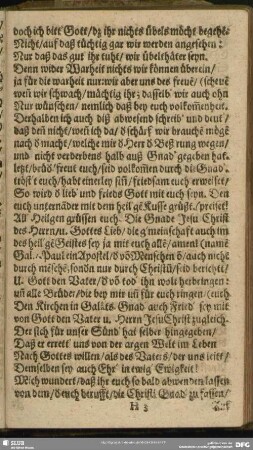 doch ich bitt Gott/ dz ihr nichts übels möcht begehē
Nicht/ auf daß tüchtig gar wir werden angesehen:
Nur daß das gut ihr tuht/ wir übelthäter seyn.
Denn wider Warheit nichts wir können überein/
ja für die warheit nur: wir aber uns des freuē/ (scheuē
weñ wir schwach/ mächtig ihr; dasselb wir auch ohn
Nur wünschen/ nemlich daß bey euch volkomēnheit.
Derhalben ich auch diß abwesend schreib' und deut/
daß deñ nicht/ weñ ich da/ d' schäuf wir brauchē mögē
nach d' macht/ welche mir d' Herr d' Beß'rung wegen/
und nicht verderbens halb auß Gnad' gegeben hat.
letzt/ brüd'/ freut euch/ seid volkommen durch die Gnad;
tröst't euch/ habt einerley siñ/ friedsam euch erweiset/
So wird d' lieb und frieds Gott mit euch seyn. Den
euch unternāder mit dem heilgē Kusse grüßt./ preiset!
All Heilgen grüssen euch. Die Gnade Jesu Christ
des Herrn/ u. Gottes Lieb/ die g'meinschaft auch im
des heil gē Geistes sey ja mit euch allē/ amen! (namē
Gal. Paul ein Apostel/ d' vō Menschen ō/ auch nicht
durch mēschē/ sondn nur durch Christū/ seid berichtt/
U. Gott den Vater/ d' vō tod' ihn wolt herbringen:
uñ alle Brüder/ die bey mir uñ für euch ringen/ (euch
Den Kirchen in Galat. Gnad auch Fried' sey mit
von Gott den Vater u. Herrn Jesu Christ zugleich.
Der sich für unser Sünd' hat selber hingegeben/
Daß er errett' uns von der argen Welt im Leben
Nach Gottes willen/ als des Vaters/ der uns leitt/
Demselben sey auch Ehr' in ewig Ewigkeit!
Mich wundert/ daß ihr euch so bald abwenden lassen
von dem/ d' euch berufft/ die Christi Gnad zu fassen/
H 3